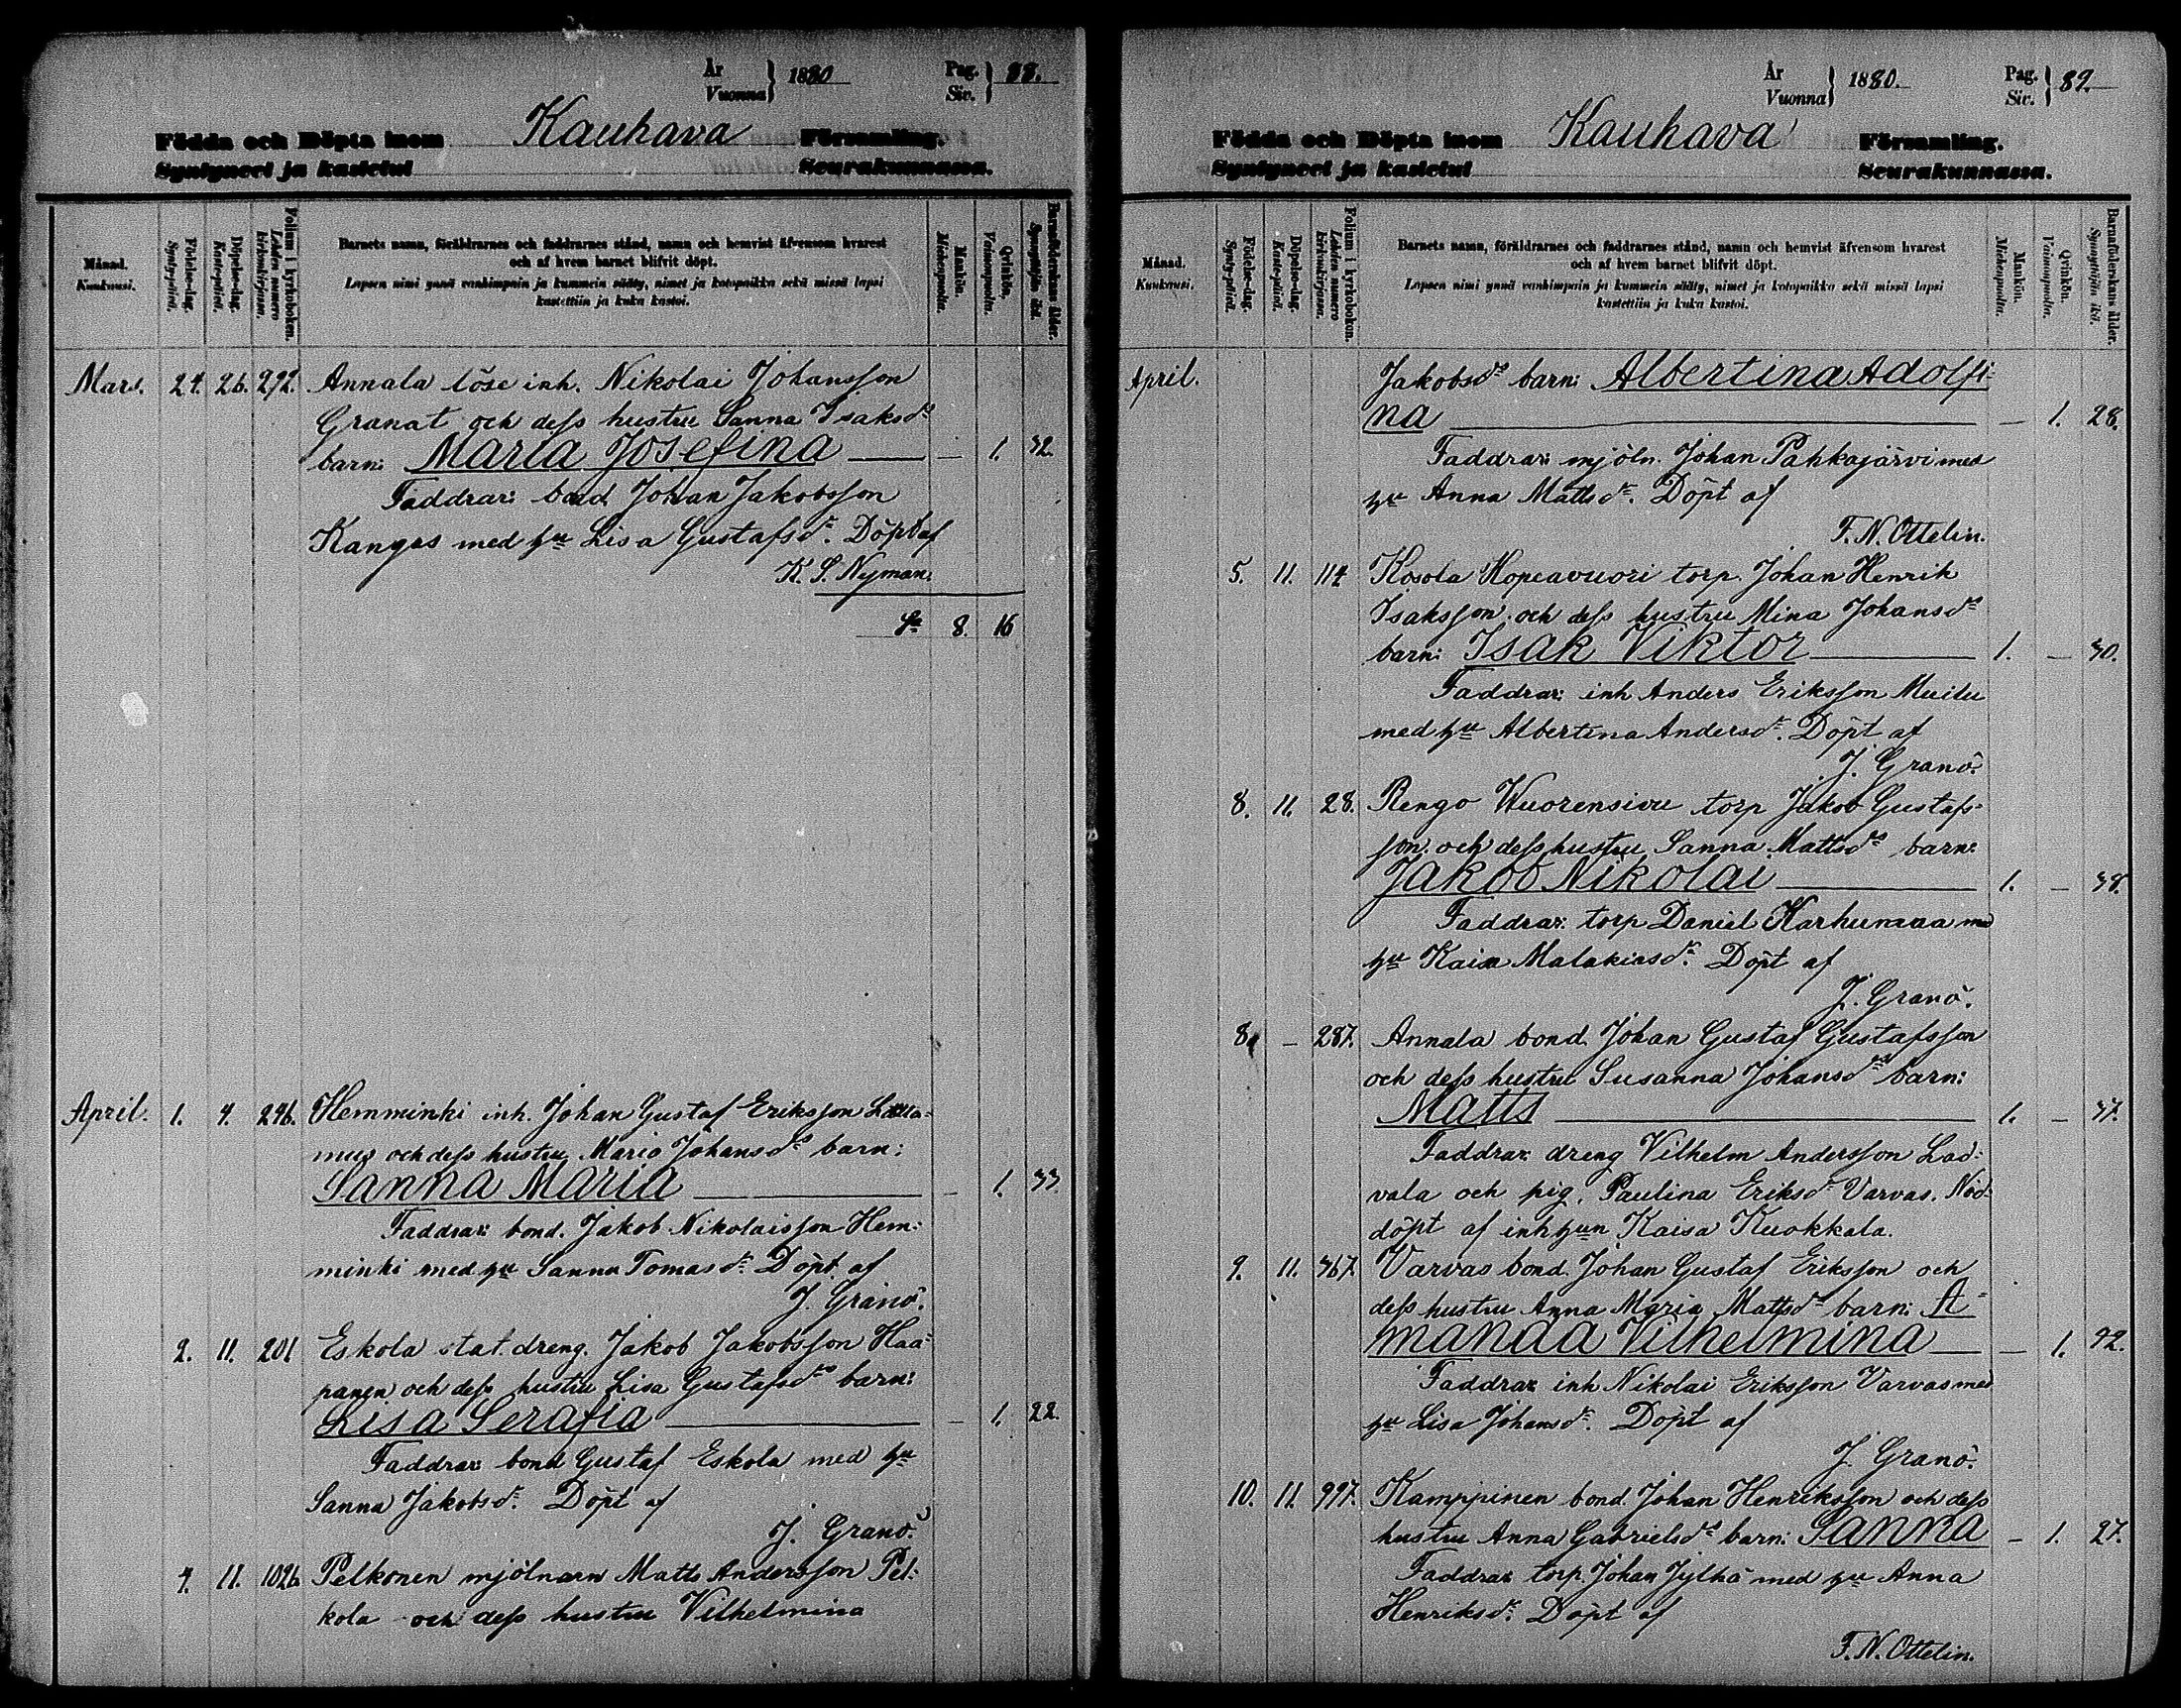 År
Vuonna } 1880
Pag.
Siv. } 88.
Födda och Döpta inom Kauhava Församling.
Syntyneet ja kastetut Seurakunnassa.
Månad.
Kuukausi.
Födelse-dag.
Synty-päivä.
Döpelse-dag.
Kaste-päivä.
Folium i kyrkoboken.
Lehden numero kirkonkirjassa.
Barnets namn, föräldrarnes och faddrarnes stånd, namn och hemvist äfvensom hvarest
och af hvem barnet blifvit döpt.
Lapsen nimi ynnä vanhimpain ja kummein sääty, nimet ja kotopaikka sekä missä lapsi
kastettiin ja kuka kastoi.
Mankön.
Miehenpuolia.
Qvinkön.
Vaimonpuolia.
Barnaföderskans ålder.
Synnyttäjän ikä.
Mars. 24. 26. 292. Annala löse inh. Nikolai Johansson
Granat och dess hustru Sanna Isaksds
barn: Maria Josefina — 1. 32.
Faddrar: bond. Johan Jakobsson
Kangas med hu Lisa Gustafsdr. Döpt af
K. S. Nyman.
Sa 8. 16
April. 1. 4. 246. Hemminki inh. Johan Gustaf Eriksson
mus och dess hustru Maria Johansds barn:
Sanna Maria — 1. 33.
Faddrar: bond. Jakob Nikolaisson Hem-
minki med hu Sanna Tomasdr. Döpt af
J. Granö.
2. 11. 201 Eskola stat.dreng. Jakob Jakobsson Haa-
panen och dess hustru Lisa Gustafsds barn:
Lisa Serafia — 1. 22.
Faddrar: bond Gustaf Eskola med hu
Sanna Jakobsdr. Döpt af
J. Granö.
4. 11. 1026. Pelkonen mjölnarn Matts Andersson Pel-
kola och dess hustru Vilhelmina
År
Vuonna } 1880.
Pag.
Siv. } 89.
Födda och Döpta inom Kauhava Församling.
Syntyneet ja kastetut Seurakunnassa.
Månad.
Kuukausi.
Födelse-dag.
Synty-päivä.
Döpelse-dag.
Kaste-päivä.
Folium i kyrkoboken.
Lehden numero kirkonkirjassa.
Barnets namn, föräldrarnes och faddrarnes stånd, namn och hemvist äfvensom hvarest
och af hvem barnet blifvit döpt.
Lapsen nimi ynnä vanhimpain ja kummein sääty, nimet ja kotopaikka sekä missä lapsi
kastettiin ja kuka kastoi.
Mankön.
Miehenpuolia.
Qvinkön.
Vaimonpuolia.
Barnaföderskans ålder.
Synnyttäjän ikä.
April. Jakobsds barn: Albertina Adolfi-
na — 1. 28.
Faddrar: mjöln. Johan Pahkajärvi med
hu Anna Mattsdr. Döpt af
F. N. Ottelin.
5. 11. 114 Kosola Hopeavuori torp. Johan Henrik
Isaksson och dess hustru Mina Johansds
barn: Isak Viktor 1. — 30.
Faddrar: inh Anders Eriksson Muilu
med hu Albertina Andersdr. Döpt af
J. Granö.
8. 11. 28. Rengo Wuorensivu torp Jakob Gustafs-
son och dess hustru Sanna Mattsds barn:
Jakob Nikolai 1. — 38.
Faddrar: torp Daniel Karhumaa med
hu Kaisa Malakiasdr. Döpt af
J. Granö.
8. — 287. Annala bond. Johan Gustaf Gustafsson
och dess hustru Susanna Johansds barn:
Matts 1. — 37.
Faddrar: dreng Vilhelm Andersson Lad-
vala och pig. Paulina Eriksdr Varvas. Nöd-
döpt af inh hun Kaisa Kuokkala.
9. 11. 367. Varvas bond. Johan Gustaf Eriksson och
dess hustru Anna Maria Mattsds barn: A-
manda Vilhelmina — 1. 42.
Faddrar: inh Nikolai Eriksson Varvas med
hu Lisa Johansdr. Döpt af
J. Granö.
10. 11. 997. Kamppinen bond. Johan Henriksson och dess
hustru Anna Gabrielsds barn: Sanna — 1. 27.
Faddrar: torp. Johan Jylhä med hu Anna
Henriksdr. Döpt af
F. N. Ottelin.